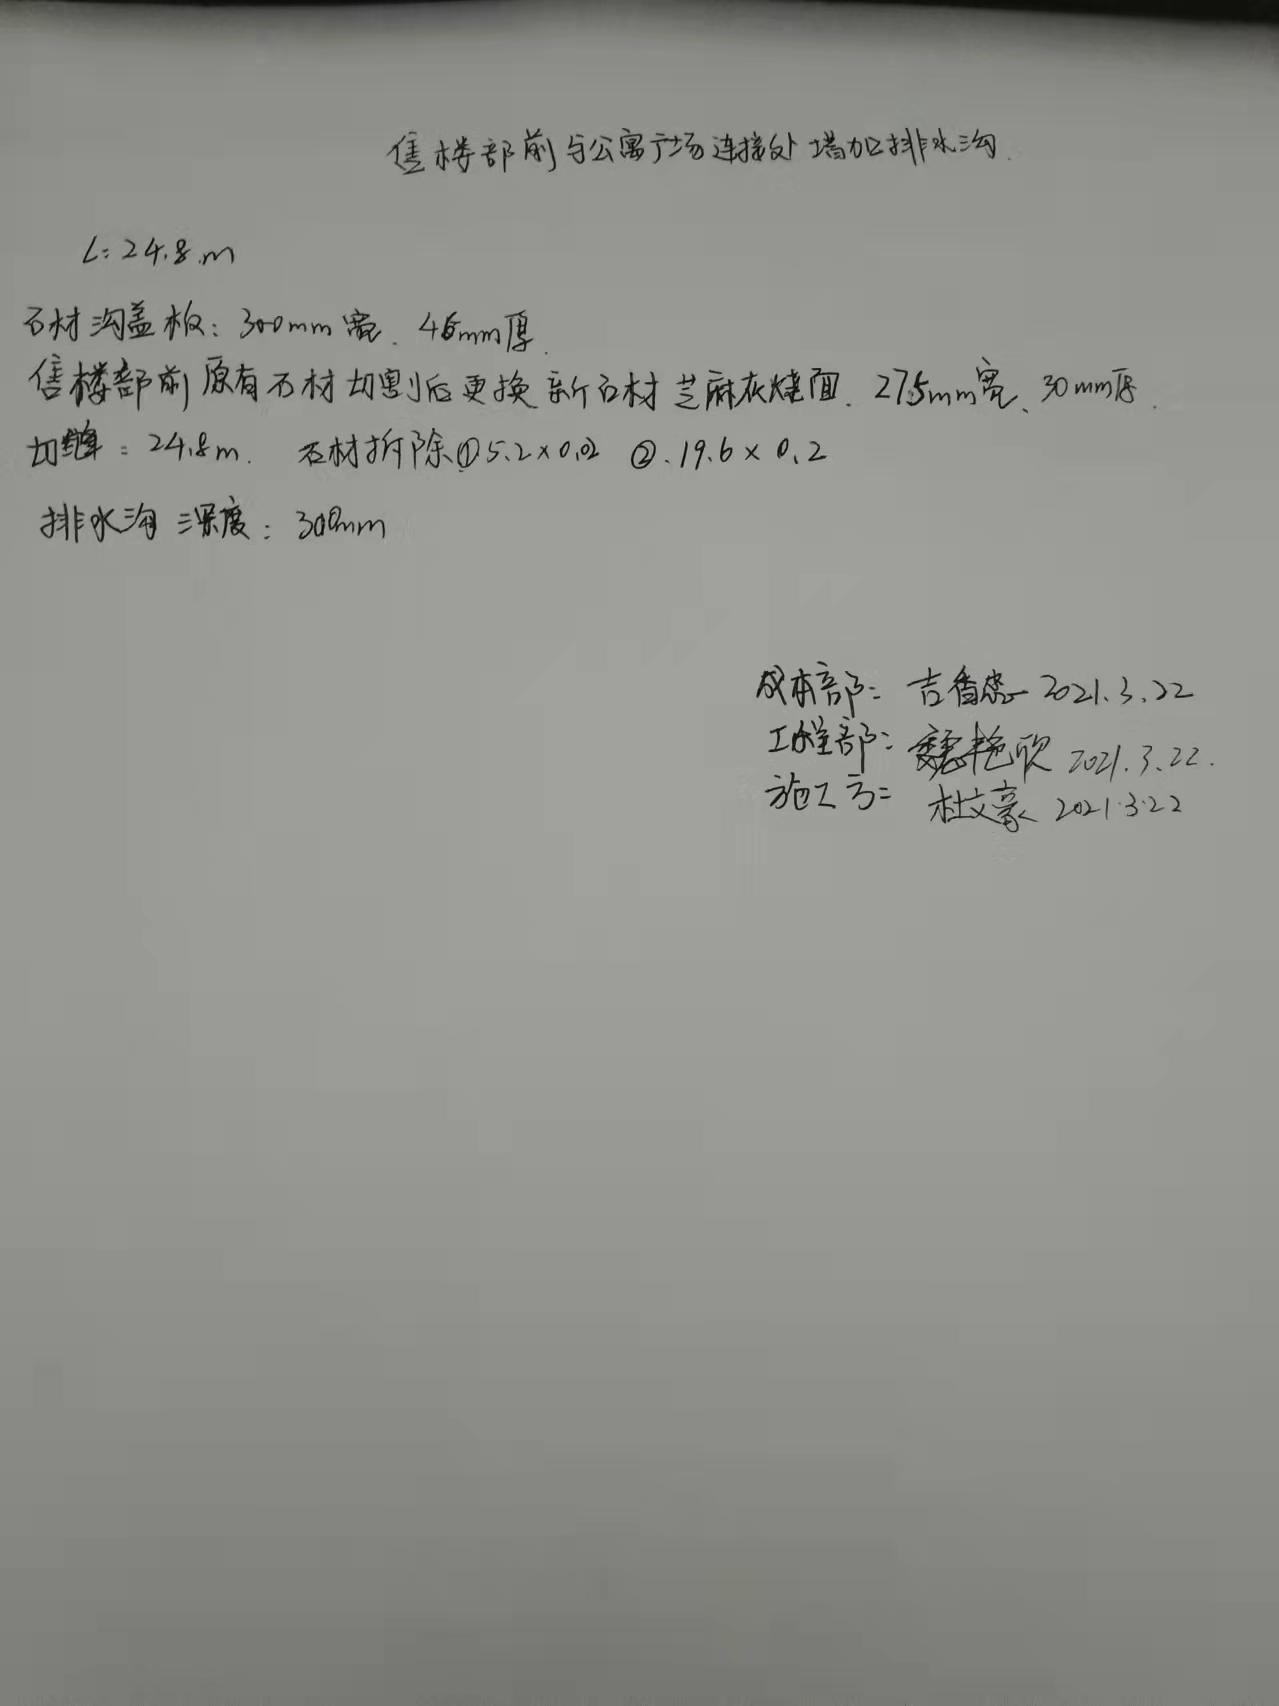 售楼部前与公寓广场连接处增加排水沟.
L=24.8.m
石材沟盖板:300mm宽.46mm厚.
售楼部前原有石材切割后更换新石材芝麻灰烧面.275mm宽、30mm厚.
切缝:24.8m. 石材拆除①5.2×0.02 ②.19.6×0.2
排水沟深度:300mm
成本部:吉香 2021.3.22
工程部:魏艳欣 2021.3.22.
施工方:杜文豪 2021.3.22